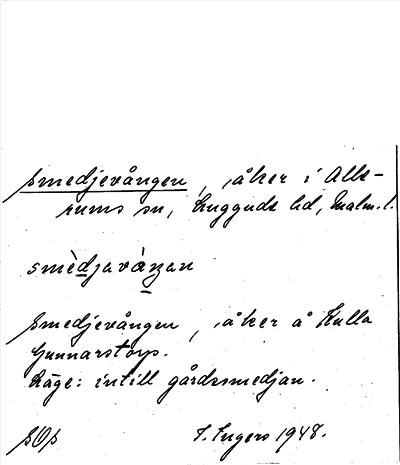 Smedjevången, åker i Alle-
rums sn, Luggude hd, Malm. l.
smèdjavàŋan
Smedjevången, åker å Kulla
Gunnarstorp.
Läge: intill gårdssmedjan.
I. Ingers 1948.